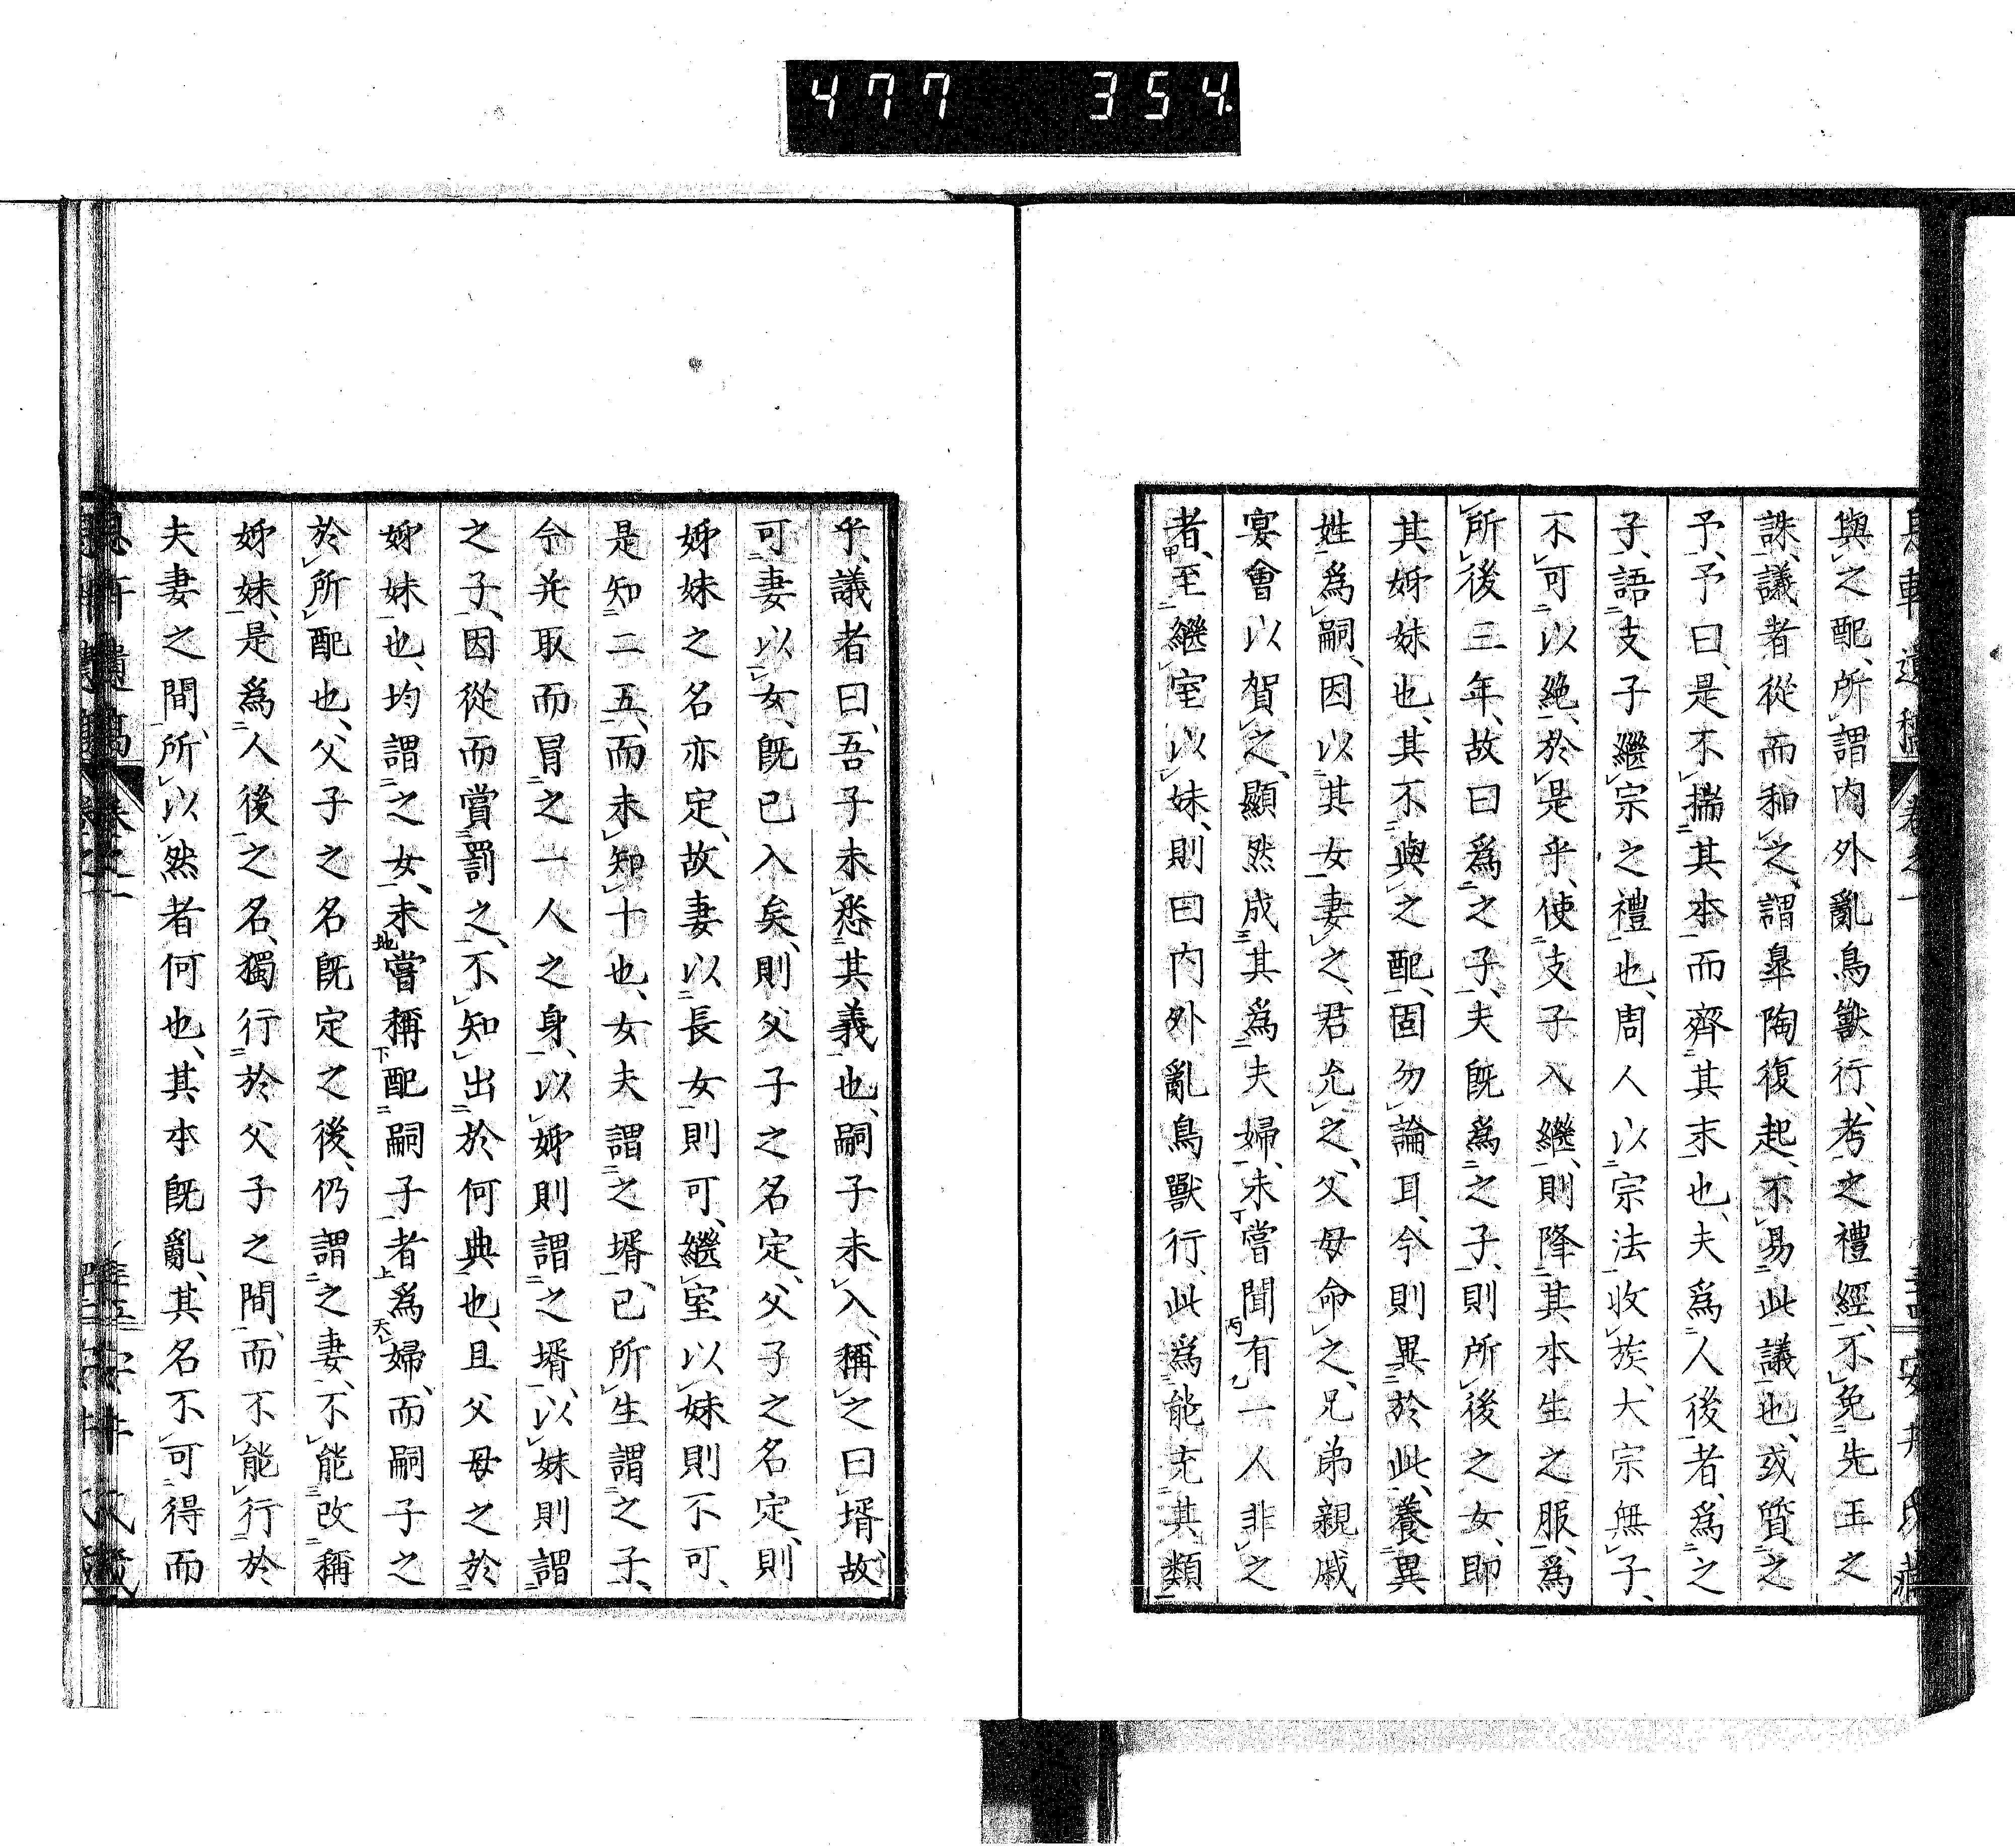 477 354
與之配、所謂内外亂鳥獸行、考之禮經、不免先王之
誅、議者從而和之、謂皐陶復起、不易此議也、或質之
予、予曰、是不揣其本而齊其末也、夫爲人後者、爲之
子、語支子繼宗之禮也、周人以宗法收族、大宗無子、
不可以絶、於是乎、使支子入繼、則降其本生之服、爲
所後三年、故曰爲之子、夫既爲之子、則所後之女、即
其姊妹也、其不與之配、固勿論耳、今則異於此、養異
姓爲嗣、因以其女妻之、君允之、父母命之、兄弟親戚
宴會以賀之、顯然成其爲夫婦、未嘗聞有一人非之
者、至繼室以妹、則曰内外亂鳥獸行、此爲能充其類
乎、議者曰、吾子未悉其義也、嗣子未入、稱之曰壻、故
可妻以女、既已入矣、則父子之名定、父子之名定、則
姊妹之名亦定、故妻以長女則可、繼室以妹則不可、
是知二五、而未知十也、女夫謂之壻、已所生謂之子、
今并取而冒之一人之身、以姊則謂之壻、以妹則謂
之子、因從而賞罰之、不知出於何典也、且父母之於
姊妹也、均謂之女、未嘗稱配嗣子者爲婦、而嗣子之
於所配也、父子之名既定之後、仍謂之妻、不能改稱
姊妹、是爲人後之名、獨行於父子之間、而不能行於
夫妻之間、所以然者何也、其本既亂、其名不可得而